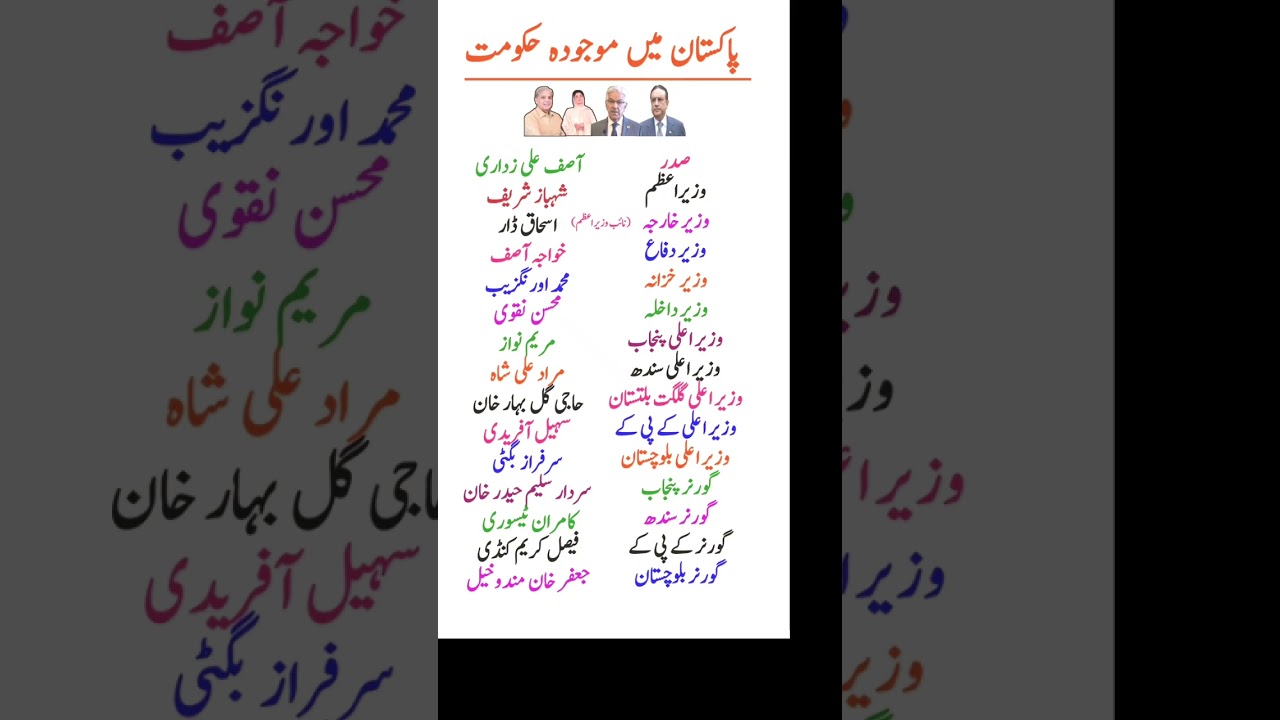 پاکستان میں موجودہ حکومت
صدر آصف علی زداری
وزیراعظم شہباز شریف
وزیر خارجہ (نائب وزیراعظم) اسحاق ڈار
وزیر دفاع خواجہ آصف
وزیر خزانہ محمد اورنگزیب
وزیر داخلہ محسن نقوی
وزیر اعلی پنجاب مریم نواز
وزیر اعلی سندھ مراد علی شاہ
وزیر اعلی گلگت بلتستان حاجی گل بہار خان
وزیر اعلی کے پی کے سہیل آفریدی
وزیر اعلی بلوچستان سرفراز بگٹی
گورنر پنجاب سردار سلیم حیدر خان
گورنر سندھ کامران ٹیسوری
گورنر کے پی کے فیصل کریم کنڈی
گورنر بلوچستان جعفر خان مندوخیل
خواجہ آصف
محمد اورنگزیب
محسن نقوی
مریم نواز
مراد علی شاہ
حاجی گل بہار خان
سہیل آفریدی
سرفراز بگٹی